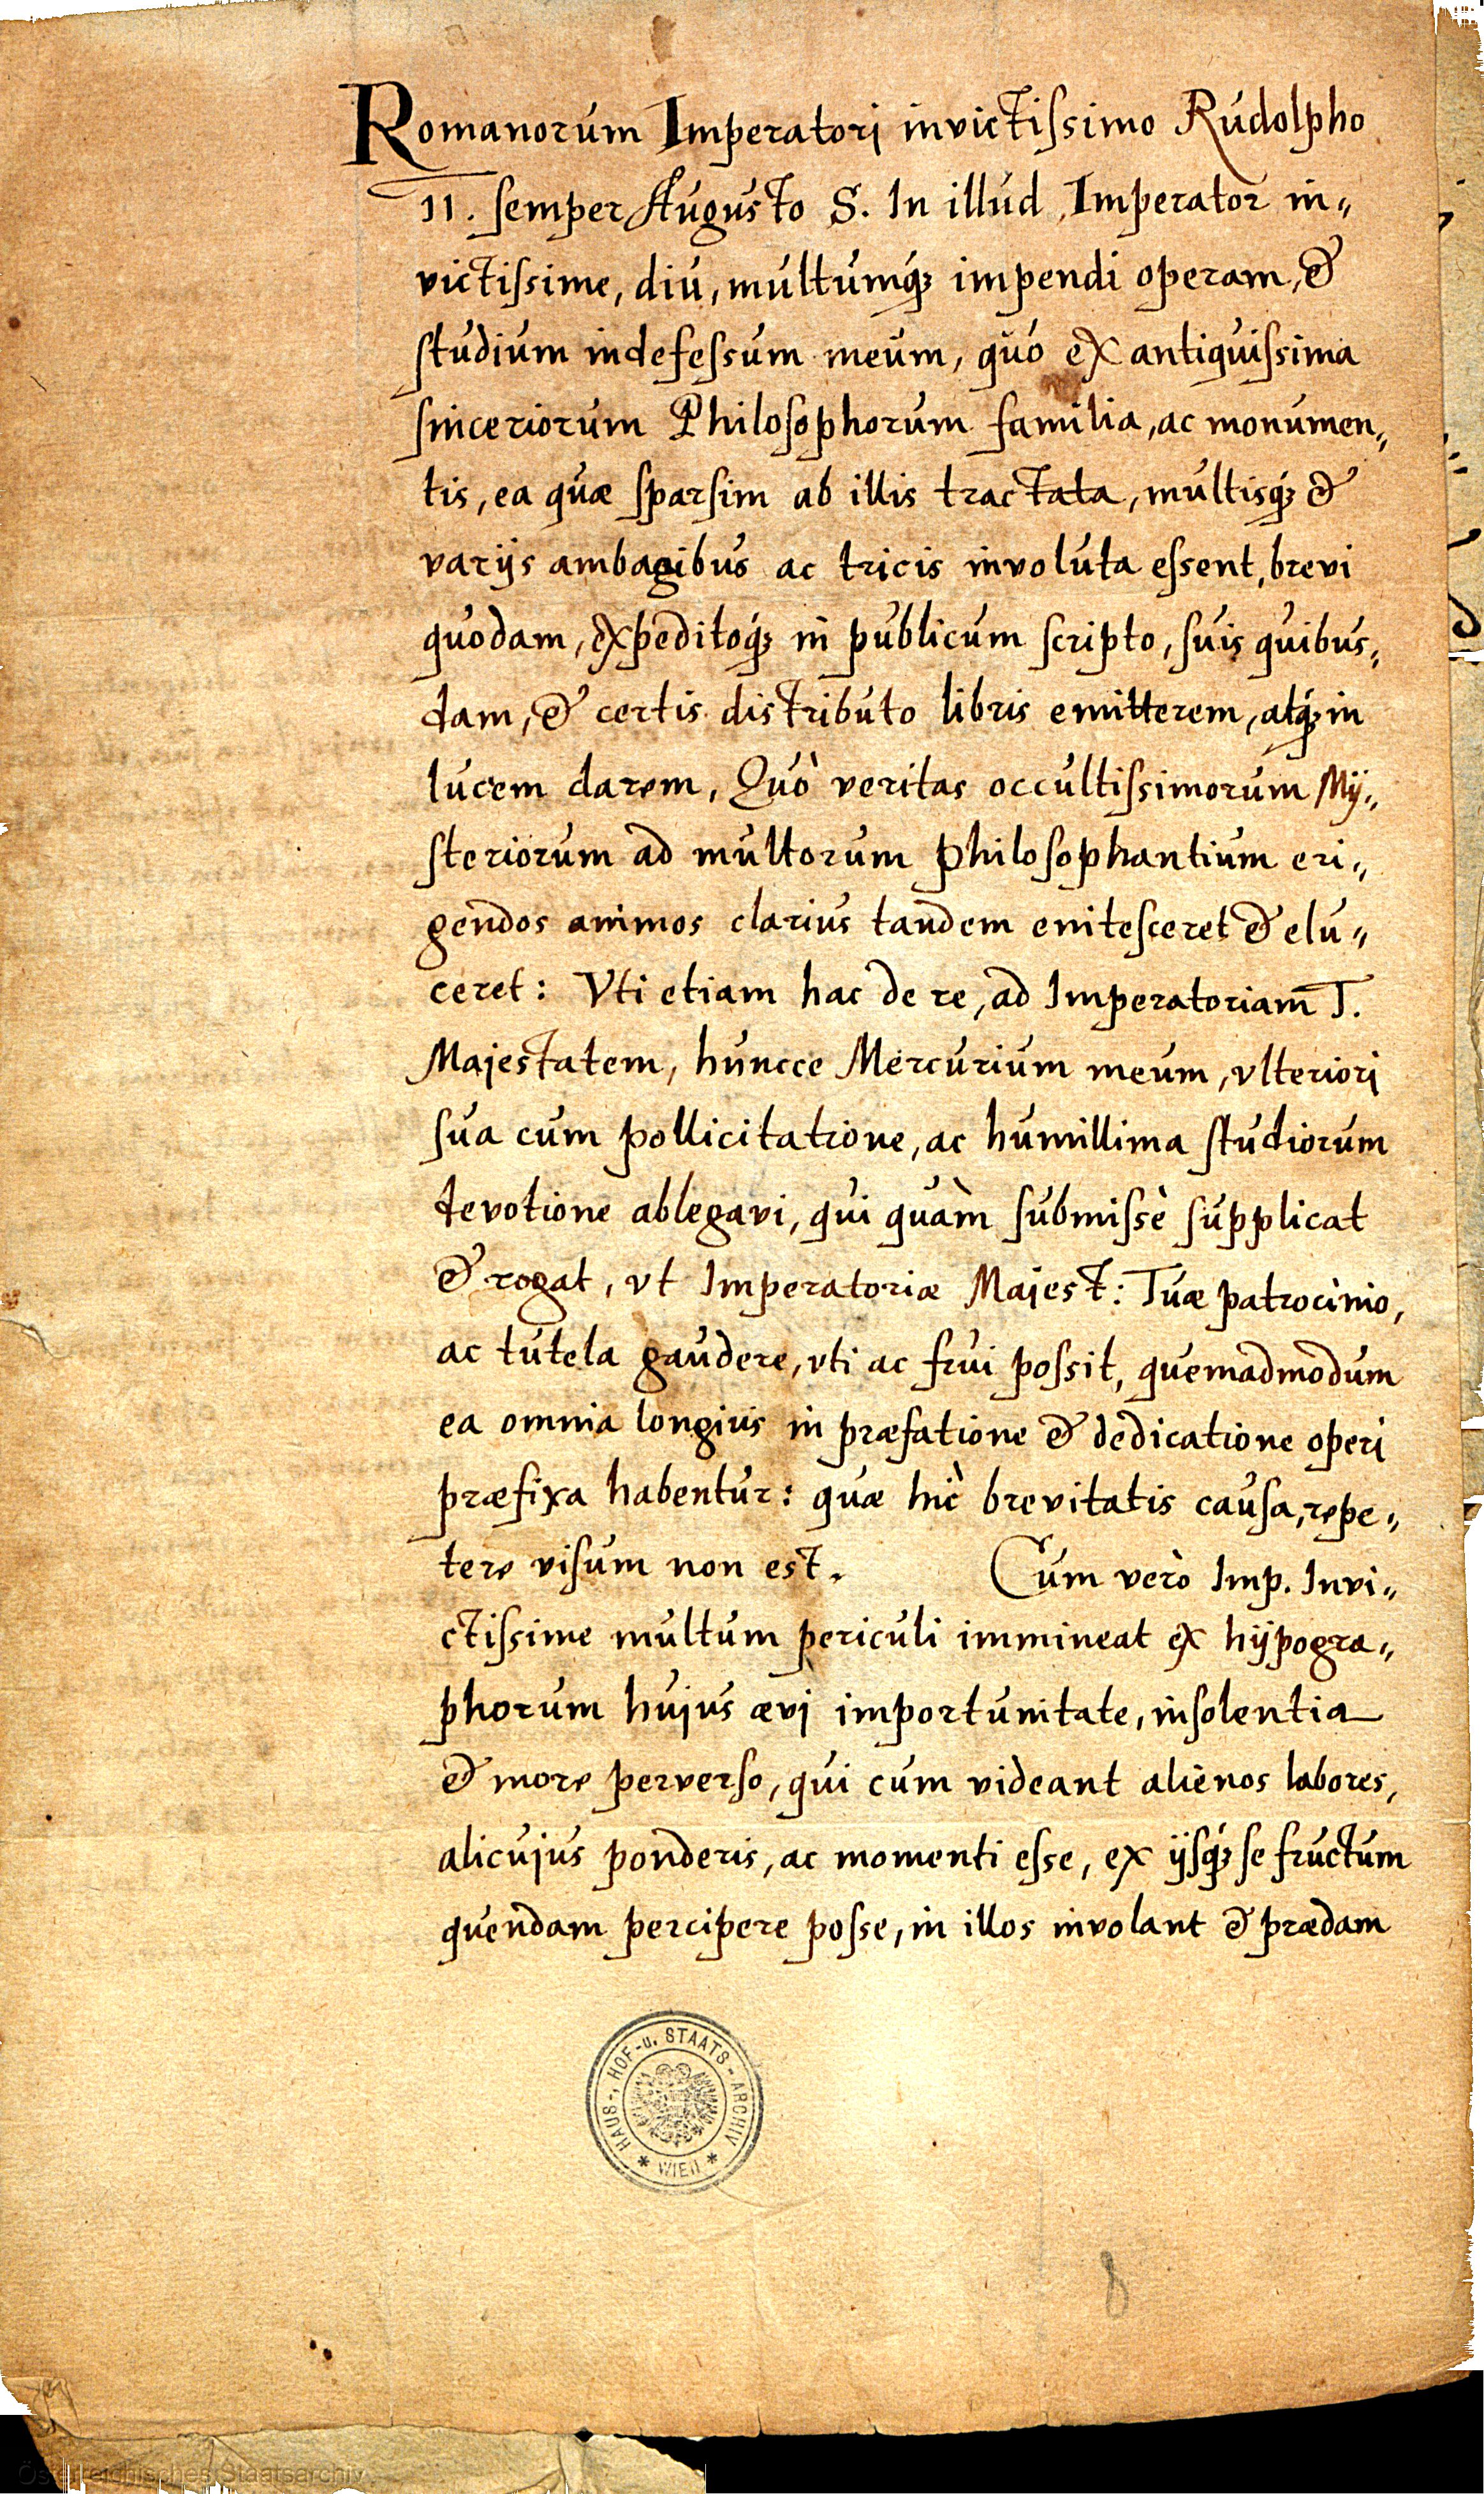 Romanorum Imperatori invictiſsimo Rudolpho
II. ſemper Augusto S. In illud Imperator in„
victiſsime, diu, multumq́ꝫ impendi operam, &
ſtudium indefeſsum meum, quo ex antiquiſsima
ſinceriorum Philoſophorum familia, ac monumen„
tis, ea quæ ſparſim ab illis tractata, multisq́ꝫ &
varijs ambagibus ac tricis involuta eſsent, brevi
quodam, expeditoq́ꝫ in publicum ſcripto, ſuis quibus„
dam, & certis distributo libris emitterem, atq́ꝫ in
lucem darem, Quò veritas occultiſsimorum Mÿ„
ſteriorum ad multorum philoſophantium eri„
gendos animos clarius tandem eniteſceret & elu„
ceret: Vti etiam hac de re, ad Imperatoriam T.
Majestatem, huncce Mercurium meum, vlteriori
ſua cum pollicitatione, ac humillima ſtudiorum
devotione ablegavi, qui quàm ſubmiſsè ſupplicat
& rogat, vt Imperatoriæ Majest: Tuæ patrocinio,
ac tutela gaudere, vti ac frui poſsit, quemadmodum
ea omnia longius in præfatione & dedicatione operi
præfixa habentur: quæ hìc brevitatis cauſa, repe„
tere viſum non est. Cum verò Imp. Invi„
ctiſsime multum periculi immineat ex hÿpogra„
phorum hujus ævi importunitate, inſolentia
& more perverſo, qui cum videant alienos labores,
alicujus ponderis, ac momenti eſse, ex ijſq́ꝫ ſe fructum
quendam percipere poſse, in illos involant & prædam
HAUS-, HOF- u. STAATS-ARCHIV
* WIEN *
8
Österreichisches Staatsarchiv